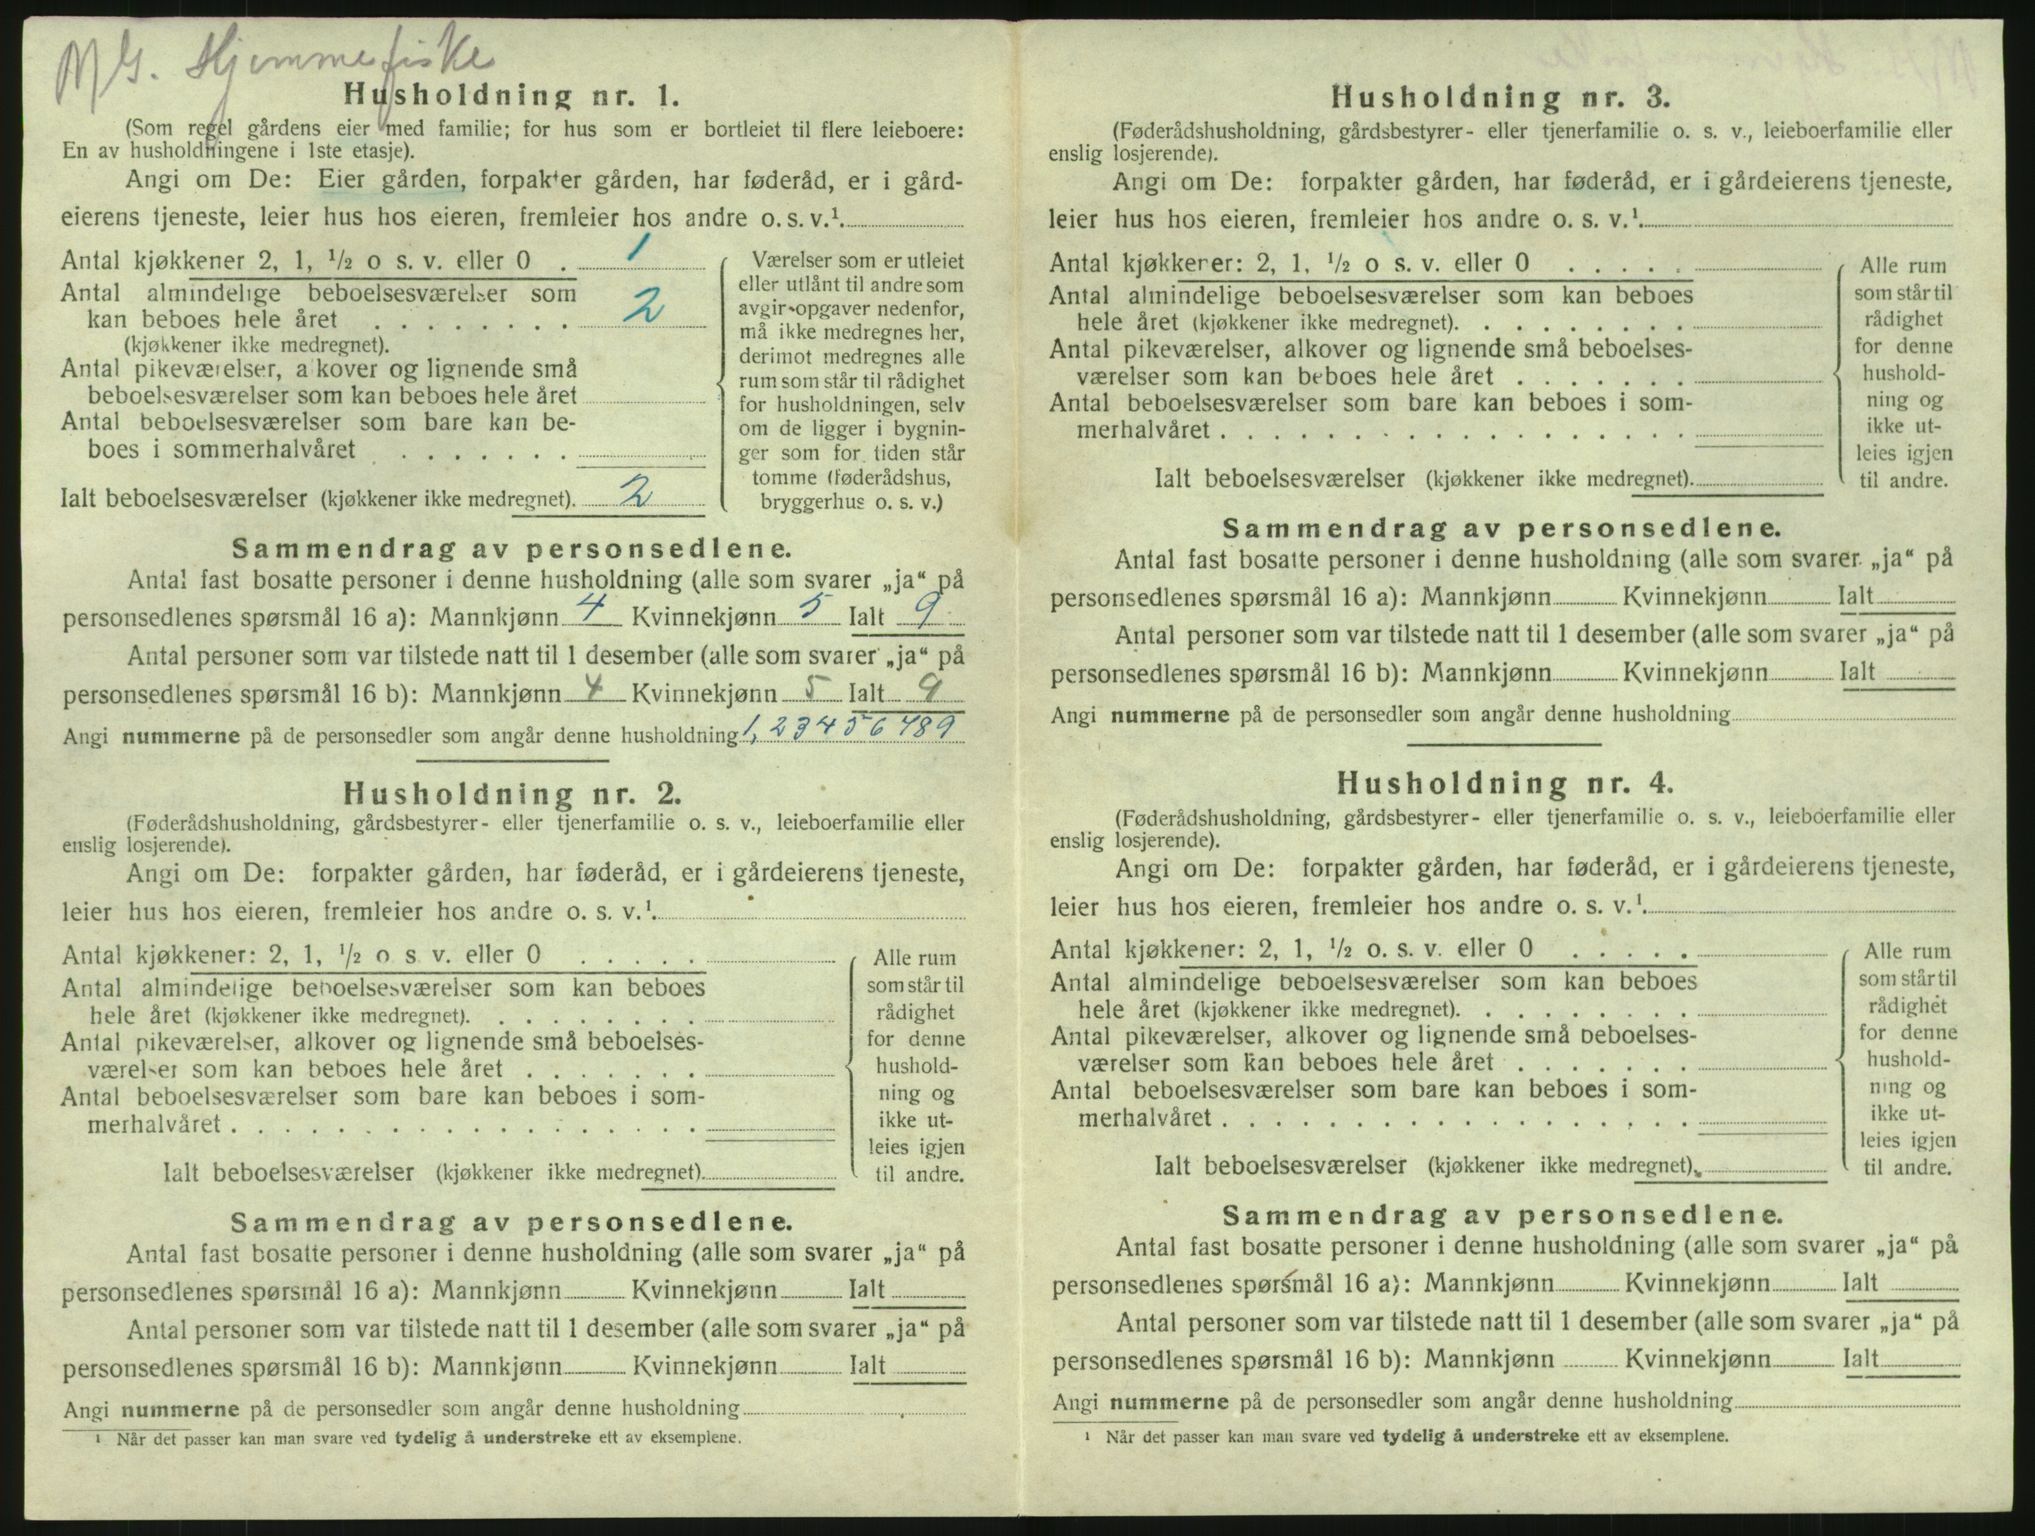 M G. Hjemmefiske
Husholdning nr. 1.
(Som regel gårdens eier med familie; for hus som er bortleiet til flere leieboere:
En av husholdningene i 1ste etasje).
Angi om De: Eier gården, forpakter gården, har føderåd, er i gård-
eierens tjeneste, leier hus hos eieren, fremleier hos andre o. s. v.¹
Antal kjøkkener 2, 1, ½ o s. v. eller 0 . 1
Antal almindelige beboelsesværelser som
kan beboes hele året . . . . . . . . 2
(kjøkkener ikke medregnet).
Antal pikeværelser, a kover og lignende små
beboelsesværelser som kan beboes hele året
Antal beboelsesværelser som bare kan be-
boes i sommerhalvåret . . . . . . .
Ialt beboelsesværelser (kjøkkener ikke medregnet). 2
Værelser som er utleiet
eller utlånt til andre som
avgir opgaver nedenfor,
må ikke medregnes her,
derimot medregnes alle
rum som står til rådighet
for husholdningen, selv
om de ligger i bygnin-
ger som for tiden står
tomme (føderådshus,
bryggerhus o. s. v.)
Sammendrag av personsedlene.
Antal fast bosatte personer i denne husholdning (alle som svarer „ja“ på
personsedlenes spørsmål 16 a): Mannkjønn 4 Kvinnekjønn 5 Ialt 9
Antal personer som var tilstede natt til 1 desember (alle som svarer „ja“ på
personsedlenes spørsmål 16 b): Mannkjønn 4 Kvinnekjønn 5 Ialt 9
Angi nummerne på de personsedler som angår denne husholdning 1, 2 3 4 5 6 7 8 9
Husholdning nr. 2.
(Føderådshusholdning, gårdsbestyrer- eller tjenerfamilie o. s. v., leieboerfamilie eller
enslig losjerende).
Angi om De: forpakter gården, har føderåd, er i gårdeierens tjeneste,
leier hus hos eieren, fremleier hos andre o. s. v.¹
Antal kjøkkener: 2, 1, ½ o s. v. eller 0 . . . . .
Antal almindelige beboelsesværelser som kan beboes
hele året (kjøkkener ikke medregnet). . . . . . . . .
Antal pikeværelser, alkover og lignende små beboelses-
værelser som kan beboes hele året . . . . . . .
Antal beboelsesværelser som bare kan beboes i som-
merhalvåret . . . . . . . . . . . . . . . . . .
Ialt beboelsesværelser (kjøkkener ikke medregnet).
Alle rum
som står til
rådighet
for denne
hushold-
ning og
ikke ut-
leies igjen
til andre.
Sammendrag av personsedlene.
Antal fast bosatte personer i denne husholdning (alle som svarer „ja“ på
personsedlenes spørsmål 16 a): Mannkjønn Kvinnekjønn Ialt
Antal personer som var tilstede natt til 1 desember (alle som svarer „ja“ på
personsedlenes spørsmål 16 b): Mannkjønn Kvinnekjønn Ialt
Angi nummerne på de personsedler som angår denne husholdning
¹ Når det passer kan man svare ved tydelig å understreke ett av eksemplene.
Husholdning nr. 3.
(Føderådshusholdning, gårdsbestyrer- eller tjenerfamilie o. s. v., leieboerfamilie eller
enslig losjerende).
Angi om De: forpakter gården, har føderåd, er i gårdeierens tjeneste,
leier hus hos eieren, fremleier hos andre o. s. v.¹
Antal kjøkkener: 2, 1, ½ o s. v. eller 0 . . . . .
Antal almindelige beboelsesværelser som kan beboes
hele året (kjøkkener ikke medregnet). . . . . . . . .
Antal pikeværelser, alkover og lignende små beboelses-
værelser som kan beboes hele året . . . . . . .
Antal beboelsesværelser som bare kan beboes i som-
merhalvåret . . . . . . . . . . . . . . . . . .
Ialt beboelsesværelser (kjøkkener ikke medregnet).
Alle rum
som står til
rådighet
for denne
hushold-
ning og
ikke ut-
leies igjen
til andre.
Sammendrag av personsedlene.
Antal fast bosatte personer i denne husholdning (alle som svarer „ja“ på
personsedlenes spørsmål 16 a): Mannkjønn Kvinnekjønn Ialt
Antal personer som var tilstede natt til 1 desember (alle som svarer „ja“ på
personsedlenes spørsmål 16 b): Mannkjønn Kvinnekjønn Ialt
Angi nummerne på de personsedler som angår denne husholdning
Husholdning nr. 4.
(Føderådshusholdning, gårdsbestyrer- eller tjenerfamilie o. s. v., leieboerfamilie eller
enslig losjerende).
Angi om De: forpakter gården, har føderåd, er i gårdeierens tjeneste,
leier hus hos eieren, fremleier hos andre o. s. v.¹
Antal kjøkkener: 2, 1, ½ o. s. v. eller 0 . . . . .
Antal almindelige beboelsesværelser som kan beboes
hele året (kjøkkener ikke medregnet). . . . . . . . .
Antal pikeværelser, alkover og lignende små beboelses-
værelser som kan beboes hele året . . . . . . .
Antal beboelsesværelser som bare kan beboes i som-
merhalvåret . . . . . . . . . . . . . . . . . .
Ialt beboelsesværelser (kjøkkener ikke medregnet).
Alle rum
som står til
rådighet
for denne
hushold-
ning og
ikke ut-
leies igjen
til andre.
Sammendrag av personsedlene.
Antal fast bosatte personer i denne husholdning (alle som svarer „ja“ på
personsedlenes spørsmål 16 a): Mannkjønn Kvinnekjønn Ialt
Antal personer som var tilstede natt til 1 desember (alle som svarer „ja“ på
personsedlenes spørsmål 16 b): Mannkjønn Kvinnekjønn Ialt
Angi nummerne på de personsedler som angår denne husholdning
¹ Når det passer kan man svare ved tydelig å understreke ett av eksemplene.